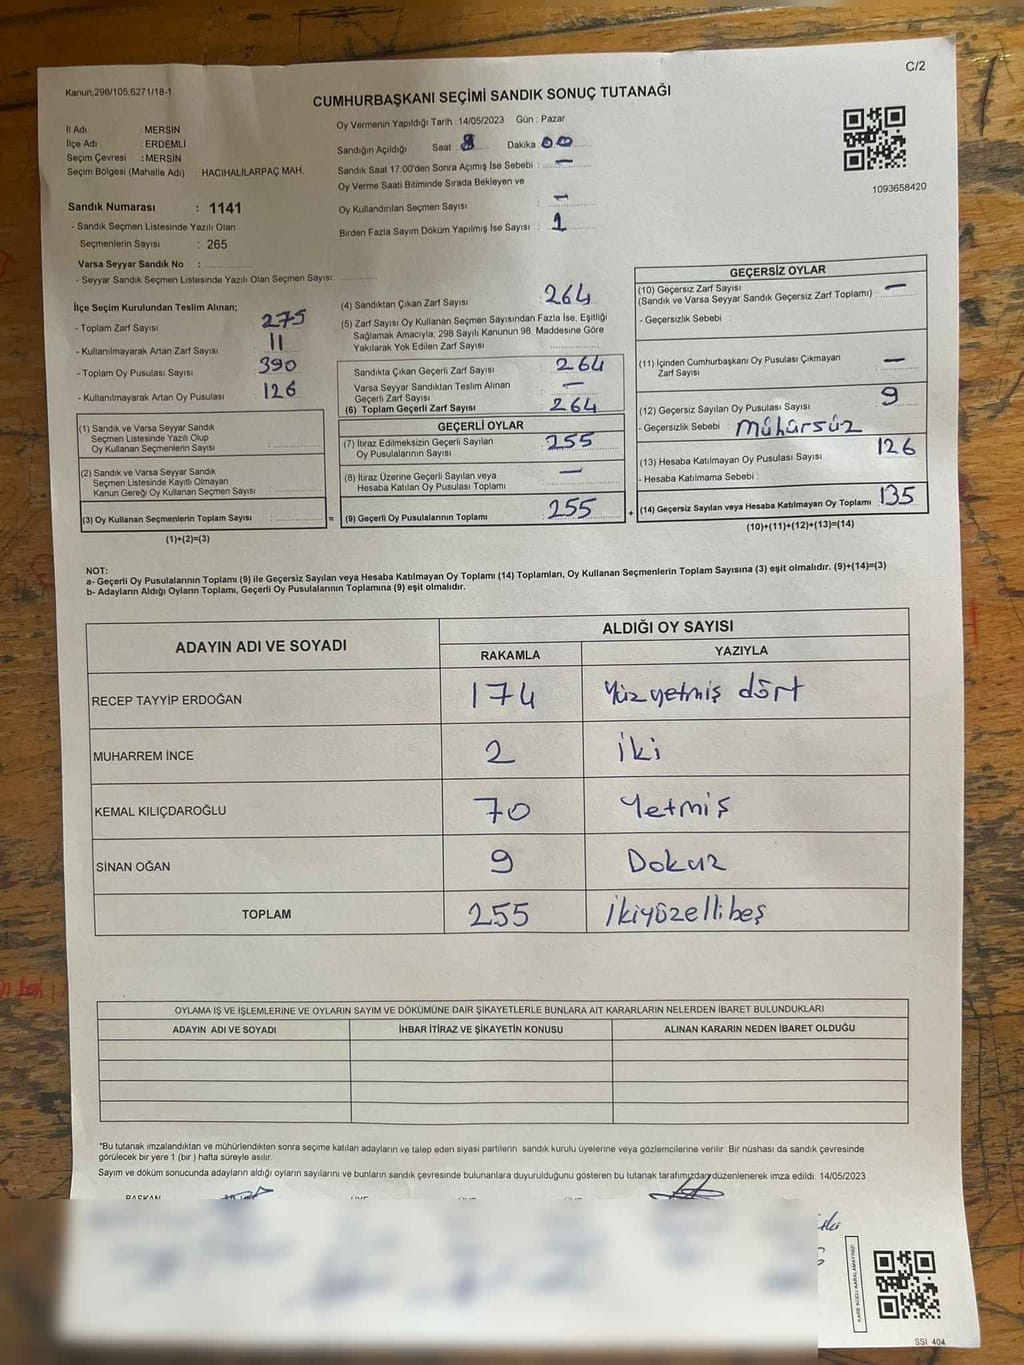 C/2
Kanun,298/105,6271/18-1
CUMHURBAŞKANI SEÇİMİ SANDIK SONUÇ TUTANAĞI
İl Adı : MERSİN
İlçe Adı : ERDEMLİ
Seçim Çevresi : MERSİN
Seçim Bölgesi (Mahalle Adı) : HACIHALİLARPAÇ MAH.
Sandık Numarası : 1141
- Sandık Seçmen Listesinde Yazılı Olan
Seçmenlerin Sayısı : 265
Varsa Seyyar Sandık No :
- Seyyar Sandık Seçmen Listesinde Yazılı Olan Seçmen Sayısı:
Oy Vermenin Yapıldığı Tarih :14/05/2023 Gün : Pazar
Sandığın Açıldığı Saat : 8 Dakika : 00
Sandık Saat 17:00'den Sonra Açımış İse Sebebi : —
Oy Verme Saati Bitiminde Sırada Bekleyen ve
Oy Kullandırılan Seçmen Sayısı : —
Birden Fazla Sayım Döküm Yapılmış İse Sayısı : 1
1093658420
İlçe Seçim Kurulundan Teslim Alınan;
- Toplam Zarf Sayısı 275
- Kullanılmayarak Artan Zarf Sayısı 11
- Toplam Oy Pusulası Sayısı 390
- Kullanılmayarak Artan Oy Pusulası 126
(1) Sandık ve Varsa Seyyar Sandık
Seçmen Listesinde Yazılı Olup
Oy Kullanan Seçmenlerin Sayısı :
(2) Sandık ve Varsa Seyyar Sandık
Seçmen Listesinde Kayıtlı Olmayan
Kanun Gereği Oy Kullanan Seçmen Sayısı :
(3) Oy Kullanan Seçmenlerin Toplam Sayısı : =
(1)+(2)=(3)
(4) Sandıktan Çıkan Zarf Sayısı : 264
(5) Zarf Sayısı Oy Kullanan Seçmen Sayısından Fazla İse, Eşitliği
Sağlamak Amacıyla; 298 Sayılı Kanunun 98. Maddesine Göre
Yakılarak Yok Edilen Zarf Sayısı :
Sandıkta Çıkan Geçerli Zarf Sayısı : 264
Varsa Seyyar Sandıktan Teslim Alınan
Geçerli Zarf Sayısı : —
(6) Toplam Geçerli Zarf Sayısı : 264
GEÇERLİ OYLAR
(7) İtiraz Edilmeksizin Geçerli Sayılan
Oy Pusulalarının Sayısı : 255
(8) İtiraz Üzerine Geçerli Sayılan veya
Hesaba Katılan Oy Pusulası Toplamı : —
(9) Geçerli Oy Pusulalarının Toplamı : 255 +
GEÇERSİZ OYLAR
(10) Geçersiz Zarf Sayısı
(Sandık ve Varsa Seyyar Sandık Geçersiz Zarf Toplamı) : —
- Geçersizlik Sebebi :
(11) İçinden Cumhurbaşkanı Oy Pusulası Çıkmayan
Zarf Sayısı : —
(12) Geçersiz Sayılan Oy Pusulası Sayısı : 9
- Geçersizlik Sebebi : mühürsüz
(13) Hesaba Katılmayan Oy Pusulası Sayısı : 126
- Hesaba Katılmama Sebebi :
(14) Geçersiz Sayılan veya Hesaba Katılmayan Oy Toplamı : 135
(10)+(11)+(12)+(13)=(14)
NOT:
a- Geçerli Oy Pusulalarının Toplamı (9) ile Geçersiz Sayılan veya Hesaba Katılmayan Oy Toplamı (14) Toplamları, Oy Kullanan Seçmenlerin Toplam Sayısına (3) eşit olmalıdır. (9)+(14)=(3)
b- Adayların Aldığı Oyların Toplamı, Geçerli Oy Pusulalarının Toplamına (9) eşit olmalıdır.
ADAYIN ADI VE SOYADI ALDIĞI OY SAYISI
RAKAMLA YAZIYLA
RECEP TAYYİP ERDOĞAN 174 Yüzyetmiş dört
MUHARREM İNCE 2 iki
KEMAL KILIÇDAROĞLU 70 Yetmiş
SİNAN OĞAN 9 Dokuz
TOPLAM 255 ikiyüzellibeş
OYLAMA İŞ VE İŞLEMLERİNE VE OYLARIN SAYIM VE DÖKÜMÜNE DAİR ŞİKAYETLERLE BUNLARA AİT KARARLARIN NELERDEN İBARET BULUNDUKLARI
ADAYIN ADI VE SOYADI İHBAR İTİRAZ VE ŞİKAYETİN KONUSU ALINAN KARARIN NEDEN İBARET OLDUĞU
*Bu tutanak imzalandıktan ve mühürlendikten sonra seçime katılan adayların ve talep eden siyasi partilerin sandık kurulu üyelerine veya gözlemcilerine verilir. Bir nüshası da sandık çevresinde
görülecek bir yere 1 (bir ) hafta süreyle asılır.
Sayım ve döküm sonucunda adayların aldığı oyların sayılarını ve bunların sandık çevresinde bulunanlara duyurulduğunu gösteren bu tutanak tarafımızdan düzenlenerek imza edildi. 14/05/2023
BAŞKAN ÜYE ÜYE ÜYE
KARE KODU KARALAMAYINIZ!
SSİ 404